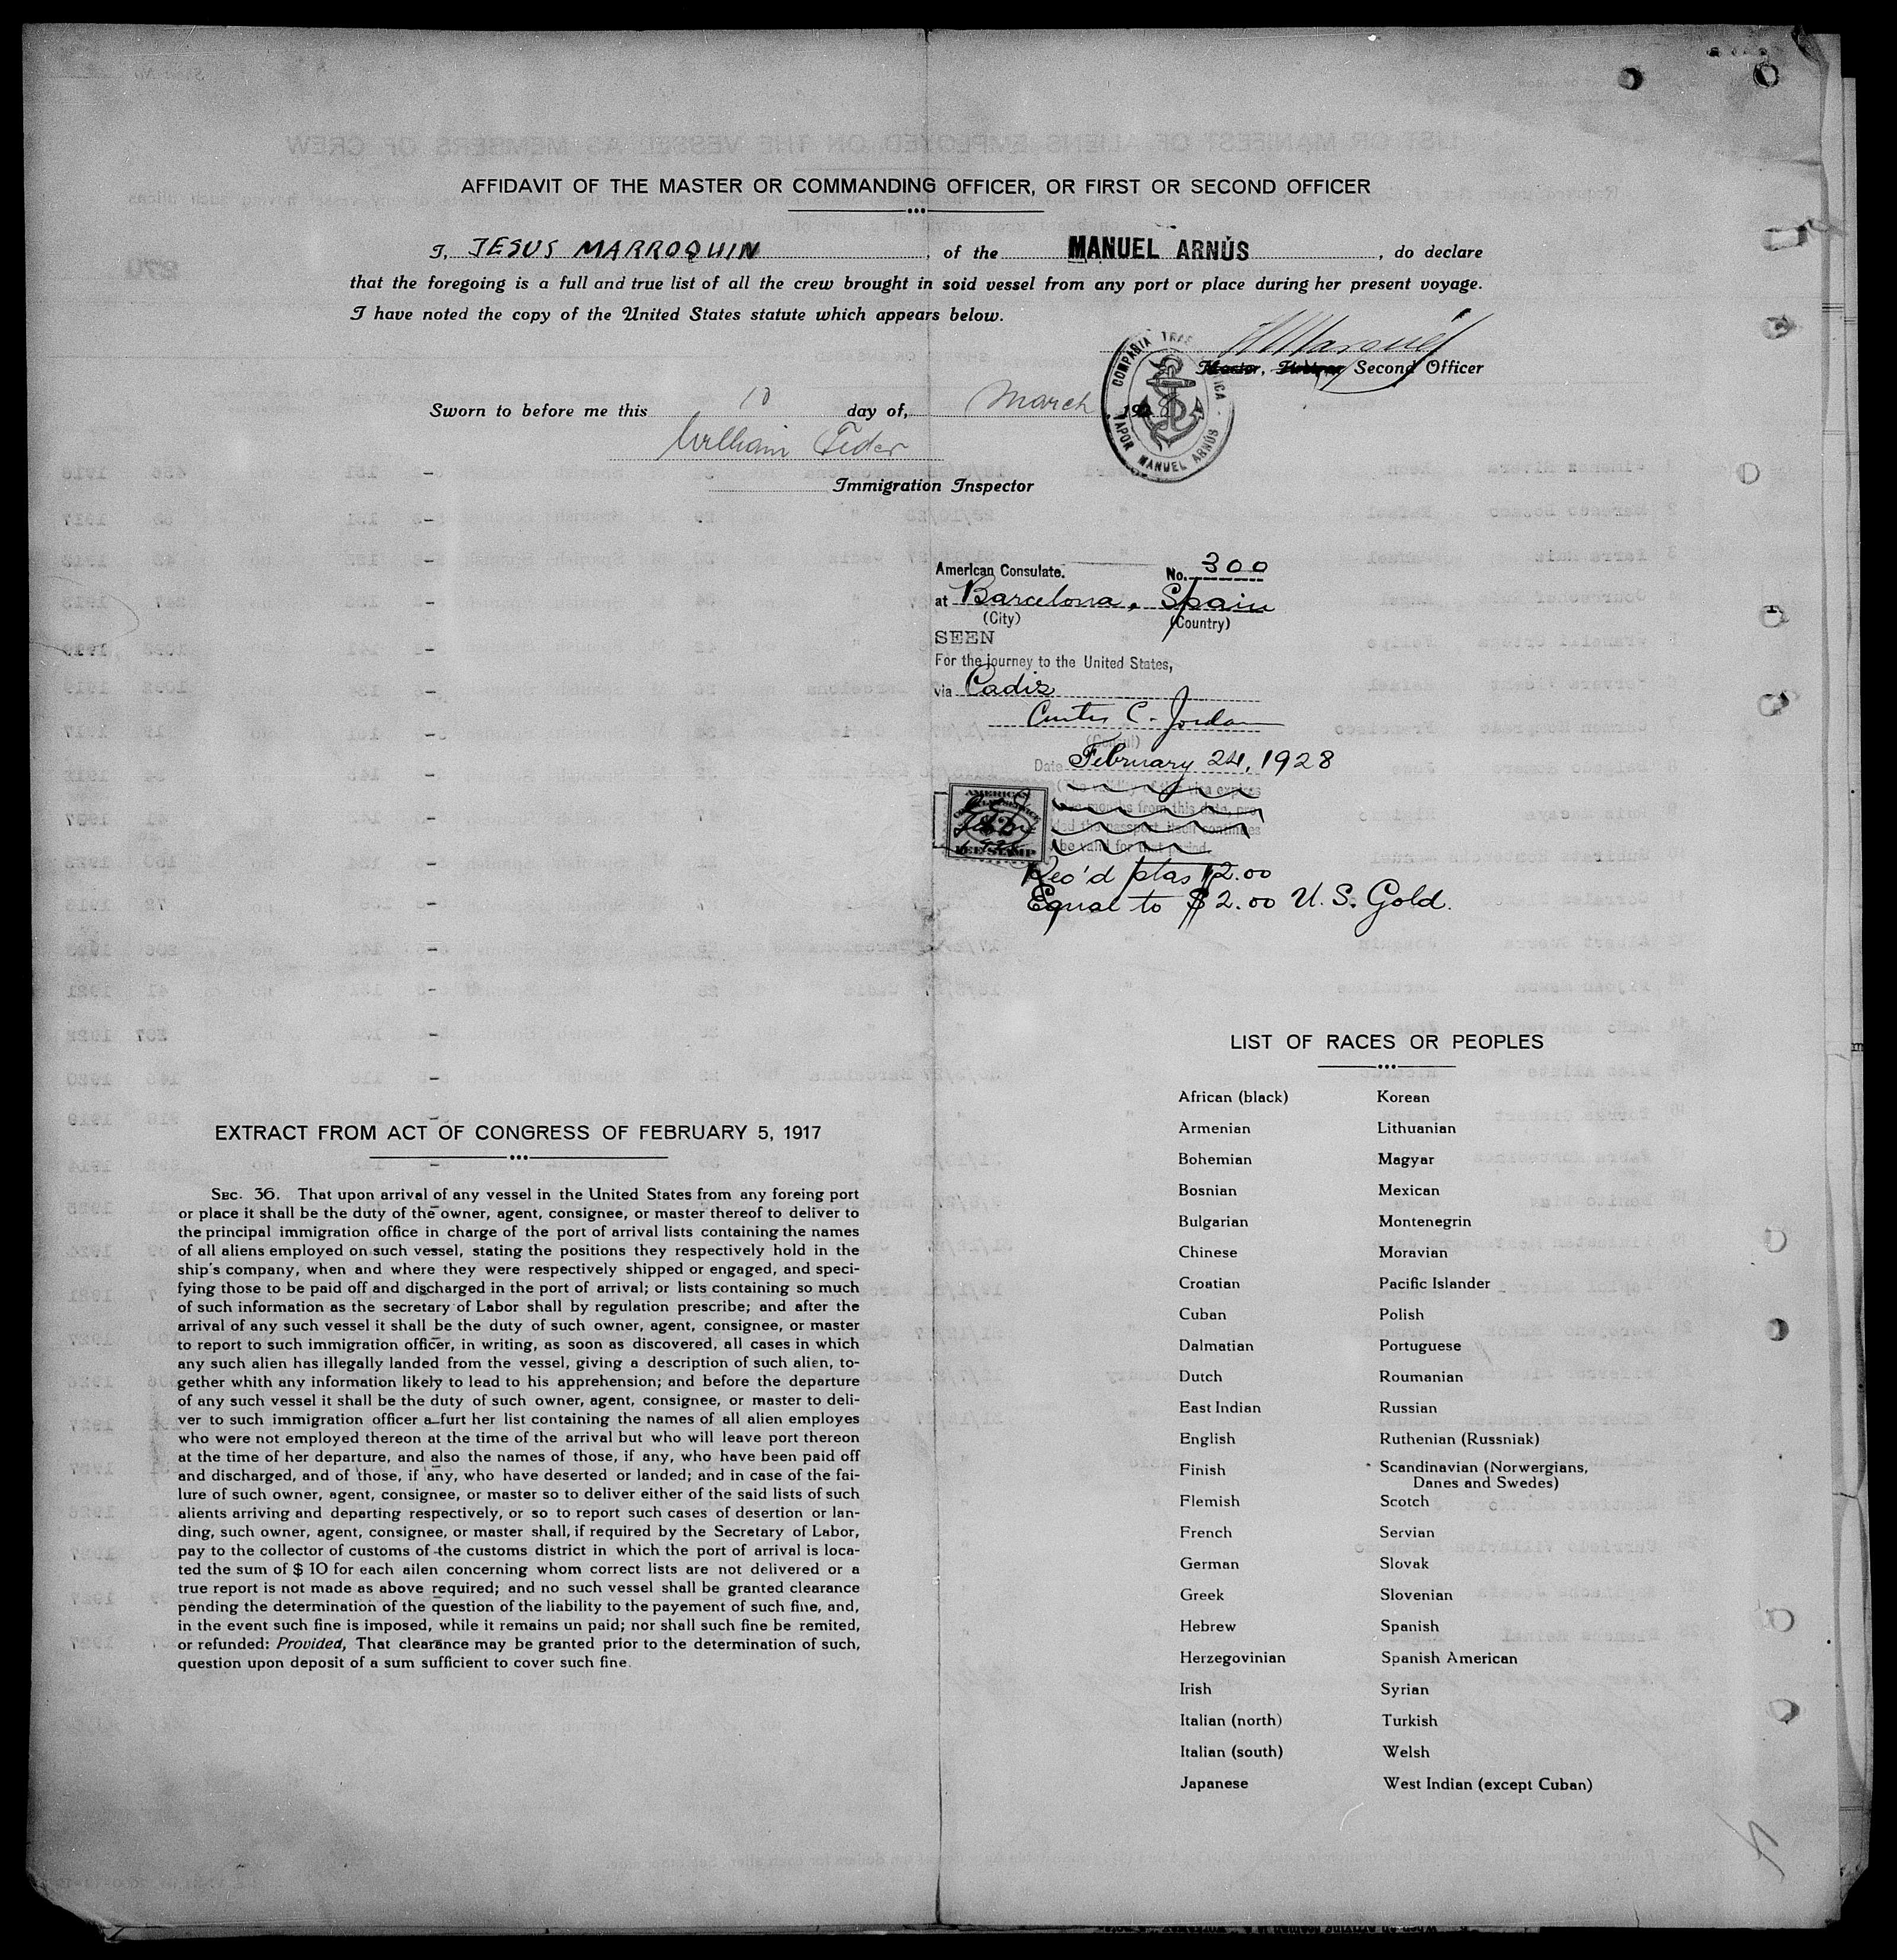 AFFIDAVIT OF THE MASTER OR COMMANDING OFFICER, OR FIRST OR SECOND OFFICER
I, JESUS MARROQUIN, of the MANUEL ARNÚS, do declare
that the foregoing is a full and true list of all the crew brought in soid vessel from any port or place during her present voyage.
I have noted the copy of the United States statute which appears below.
Master, Second Officer
COMPAÑIA
VAPOR MANUEL ARNÚS
Sworn to before me this 10 day of, March, 1928
William Feder
Immigration Inspector
American Consulate. No. 300
at Barcelona, Spain
(City) (Country)
SEEN
For the journey to the United States,
via Cadiz
Curtis C. Jordan
(Consul)
Date February 24, 1928
visa expires
months from this date, pro-
ded the passport itself continues
be valid for that period.
AMERICAN
$2
FEE STAMP
Rec'd ptas 12.00
Equal to $2.00 U.S. Gold.
EXTRACT FROM ACT OF CONGRESS OF FEBRUARY 5, 1917
SEC. 36. That upon arrival of any vessel in the United States from any foreing port
or place it shall be the duty of the owner, agent, consignee, or master thereof to deliver to
the principal immigration office in charge of the port of arrival lists containing the names
of all aliens employed on such vessel, stating the positions they respectively hold in the
ship's company, when and where they were respectively shipped or engaged, and speci-
fying those to be paid off and discharged in the port of arrival; or lists containing so much
of such information as the secretary of Labor shall by regulation prescribe; and after the
arrival of any such vessel it shall be the duty of such owner, agent, consignee, or master
to report to such immigration officer, in writing, as soon as discovered, all cases in which
any such alien has illegally landed from the vessel, giving a description of such alien, to-
gether whith any information likely to lead to his apprehension; and before the departure
of any such vessel it shall be the duty of such owner, agent, consignee, or master to deli-
ver to such immigration officer a furt her list containing the names of all alien employes
who were not employed thereon at the time of the arrival but who will leave port thereon
at the time of her departure, and also the names of those, if any, who have been paid off
and discharged, and of those, if any, who have deserted or landed; and in case of the fai-
lure of such owner, agent, consignee, or master so to deliver either of the said lists of such
alients arriving and departing respectively, or so to report such cases of desertion or lan-
ding, such owner, agent, consignee, or master shall, if required by the Secretary of Labor,
pay to the collector of customs of the customs district in which the port of arrival is loca-
ted the sum of $ 10 for each ailen concerning whom correct lists are not delivered or a
true report is not made as above required; and no such vessel shall be granted clearance
pending the determination of the question of the liability to the payement of such fine, and,
in the event such fine is imposed, while it remains un paid; nor shall such fine be remited,
or refunded: Provided, That clearance may be granted prior to the determination of such,
question upon deposit of a sum sufficient to cover such fine.
LIST OF RACES OR PEOPLES
African (black) Korean
Armenian Lithuanian
Bohemian Magyar
Bosnian Mexican
Bulgarian Montenegrin
Chinese Moravian
Croatian Pacific Islander
Cuban Polish
Dalmatian Portuguese
Dutch Roumanian
East Indian Russian
English Ruthenian (Russniak)
Finish Scandinavian (Norwergians,
Danes and Swedes)
Flemish Scotch
French Servian
German Slovak
Greek Slovenian
Hebrew Spanish
Herzegovinian Spanish American
Irish Syrian
Italian (north) Turkish
Italian (south) Welsh
Japanese West Indian (except Cuban)